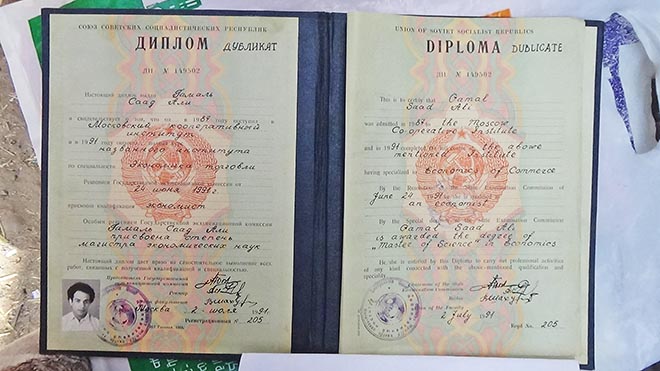 СОЮЗ СОВЕТСКИХ СОЦИАЛИСТИЧЕСКИХ РЕСПУБЛИК
ДИПЛОМ ДУБЛИКАТ
ДП № 149502
Настоящий диплом выдан Гамаль
Саад Али
в том, что он в 1984 году поступил
в Московский кооперативный
институт
и в 1991 году окончил
названного института
по специальности Экономика торговли
Решением Государственной экзаменационной комиссии от
24 июня 1991 г.
присвоена квалификация экономист
Особым решением Государственной экзаменационной комиссии
Гамаль Саад Али
присвоена степень
магистра экономических наук
Настоящий диплом дает право на самостоятельное выполнение всех
работ, связанных с полученной квалификацией и специальностью.
Председатель Государственной
экзаменационной комиссии
Ректор
Москва 2 июля 1991 г.
Регистрационный № 205
UNION OF SOVIET SOCIALIST REPUBLICS
DIPLOMA DUBLICATE
ДП № 149502
This is to certify that Gamal
Saad Ali
was admitted in 1984 to the Moscow
Co-operative Institute
and in 1991 completed the above
mentioned Institute
having specialized in Economics of Commerce
By the Resolution of the State Examination Commission of
June 24 1991 he is qualified
an economist
By the Special of the State Examination Commission
Gamal Saad Ali
is awarded the degree of
"Master of Science" in Economics
He is entitled by this Diploma to carry out professional activities
of any kind connected with the above-mentioned qualification and
speciality.
Chairman of the State
Examination Commission
Rector
Dean of the Faculty
2 July 1991
Regd No. 205